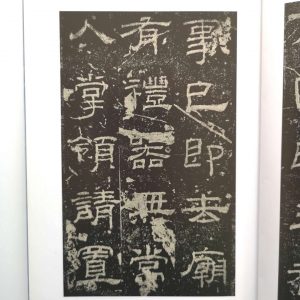 事已即去廟
有禮器無常
人掌領請置